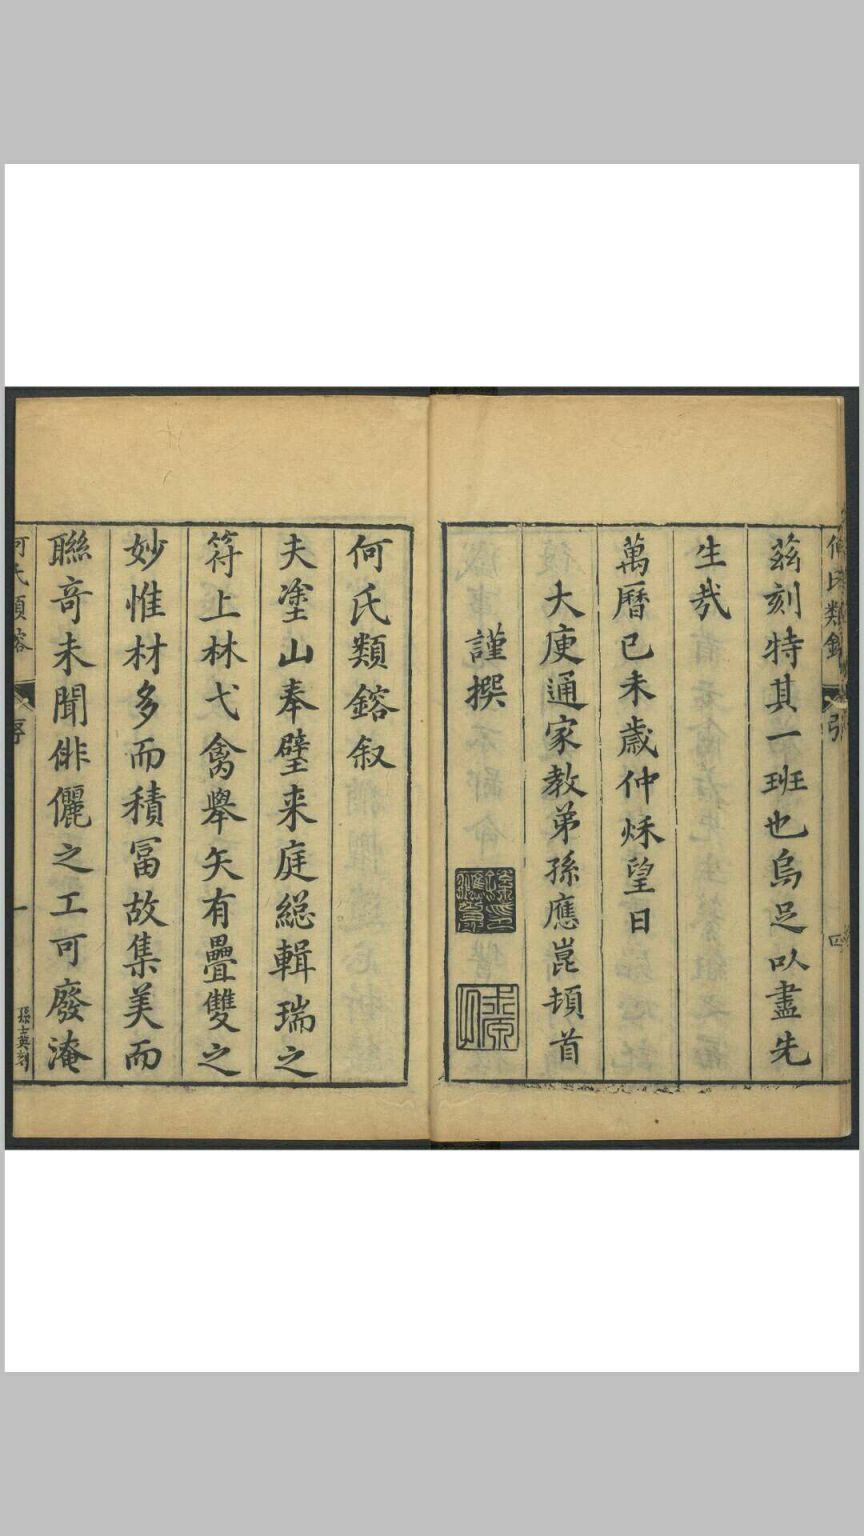 茲刻特其一班也烏足以盡先
生哉
萬曆己未歲仲秌望日
大庾通家教弟孫應崑頓首
謹撰
何氏類鎔叙
夫塗山奉璧来庭総輯瑞之
符上林弋禽舉矢有疊雙之
妙惟材多而積冨故集美而
聯奇未聞俳儷之工可廢淹
何氏類鎔
序
一